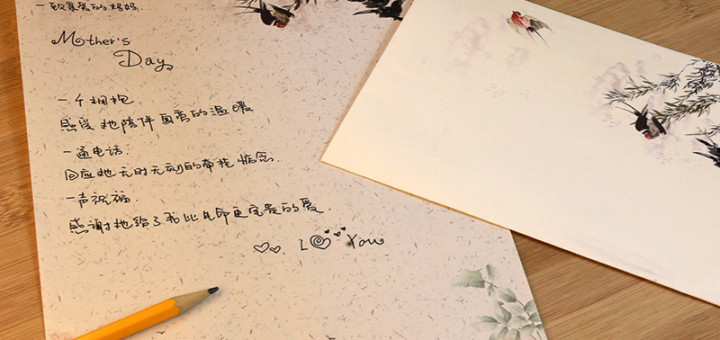 —致亲爱的妈妈
Mother's
Day
一个拥抱
感受她陪伴自己的温暖
一通电话
回应她无时无刻的牵挂惦念.
一声祝福
感谢她给了我比生命更宝贵的爱.
I You